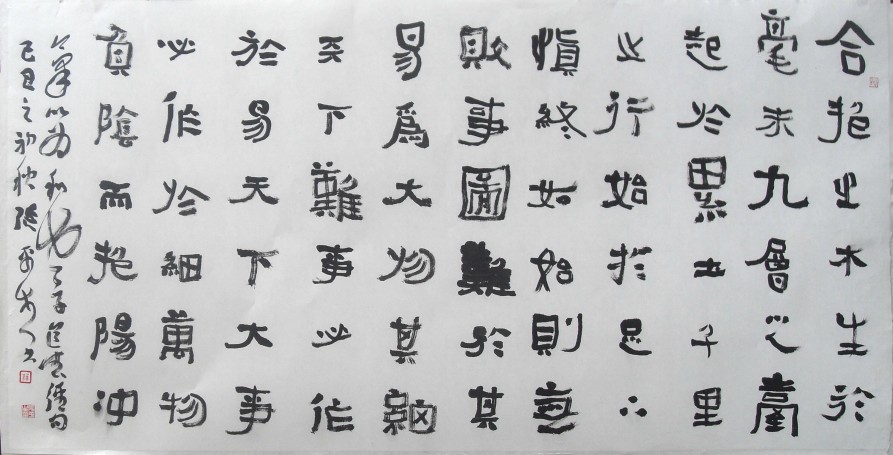 合抱之木生於
毫末九層之臺
起於累土千里
之行始於足下
慎終如始則無
敗事圖難於其
易爲大於其細
天下難事必作
於易天下大事
必作於細萬物
負陰而抱陽沖
氣以为和也老子道德經句
己丑之初秋張